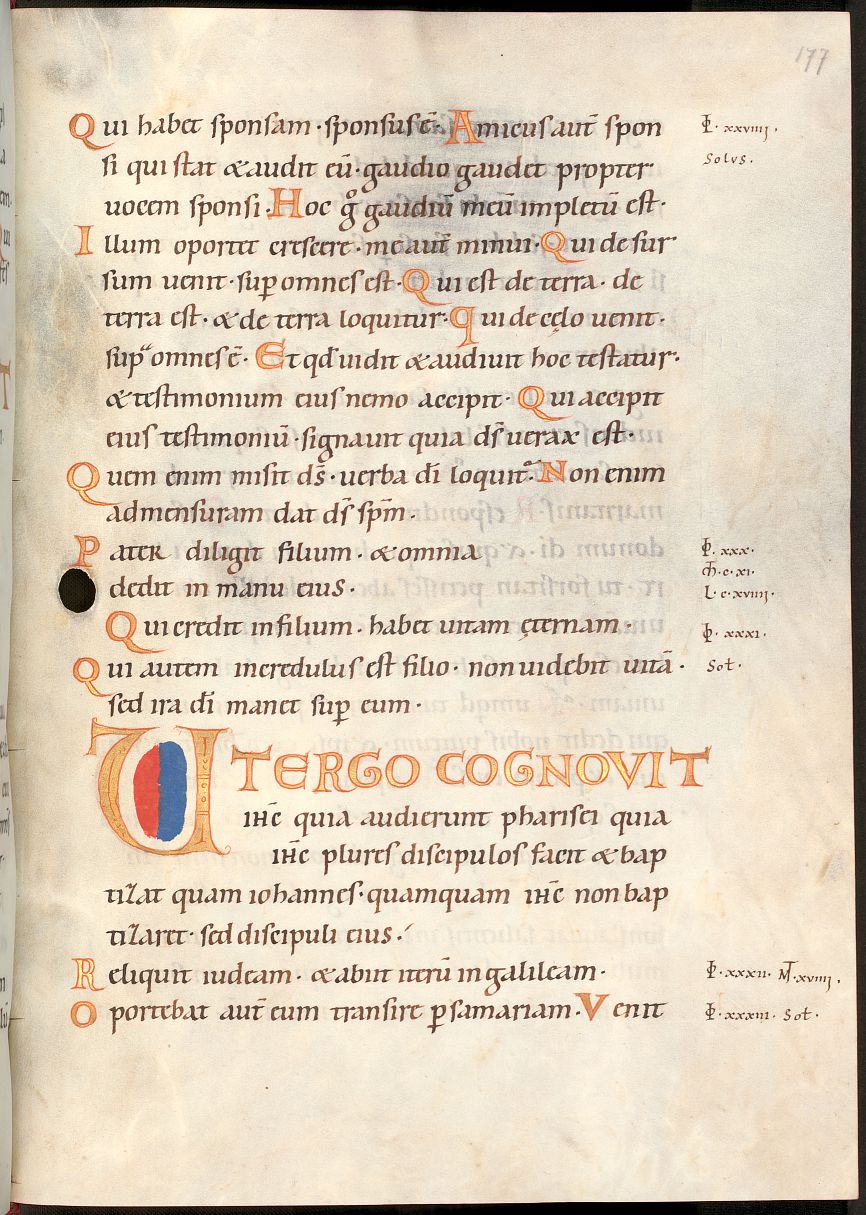 177
Qui habet sponsam · sponsus ē · Amicus aut̄ spon
si qui stat & audit eū · gaudio gaudet propter
uocem sponsi · Hoc gͦ gaudiū meū impletū est ·
Illum oportet crescere · me aut̄ minui · Qui de sur
sum uenit · suꝑ omnes est · Qui est de terra · de
terra est · & de terra loquitur · Qui de cęlo uenit ·
suꝑ omnes ē · Et qd̄ uidit & audiuit hoc testatur ·
& testimonium eius nemo accipit · Qui accipit
eius testimoniū · signauit quia ds̄ uerax est ·
Quem enim misit ds̄ · uerba dī loquit᷑ · Non enim
ad mensuram dat ds̄ spm̄ ·
Pater diligit filium · & omnia
dedit in manu eius ·
Qui credit in filium · habet uitam ęternam ·
Qui autem incredulus est filio · non uidebit uitā ·
sed ira dī manet suꝑ eum ·
UT ERGO COGNOVIT
ihc̄ quia audierunt pharisei quia
ihc̄ plures discipulos facit & bap
tizat quam iohannes · quamquam ihc̄ non bap
tizaret · sed discipuli eius ·
Reliquit iudeam · & abiit iterū in galileam ·
Oportebat aut̄ eum transire ꝑ samariam · Venit
xxviiii ·
Solus ·
xxx ·
c · xi ·
L · c · xviiii ·
xxxi ·
Sol ·
xxxii · M̄ · xviiii ·
xxxiii · Sol ·